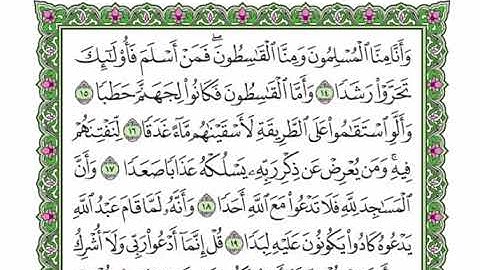 وَأَنَّا مِنَّا ٱلْمُسْلِمُونَ وَمِنَّا ٱلْقَٰسِطُونَ ۖ فَمَنْ أَسْلَمَ فَأُو۟لَٰٓئِكَ
تَحَرَّوْا۟ رَشَدًا ١٤ وَأَمَّا ٱلْقَٰسِطُونَ فَكَانُوا۟ لِجَهَنَّمَ حَطَبًا ١٥
وَأَلَّوِ ٱسْتَقَٰمُوا۟ عَلَى ٱلطَّرِيقَةِ لَأَسْقَيْنَٰهُم مَّآءً غَدَقًا ١٦ لِّنَفْتِنَهُمْ
فِيهِ ۚ وَمَن يُعْرِضْ عَن ذِكْرِ رَبِّهِۦ يَسْلُكْهُ عَذَابًا صَعَدًا ١٧ وَأَنَّ
ٱلْمَسَٰجِدَ لِلَّهِ فَلَا تَدْعُوا۟ مَعَ ٱللَّهِ أَحَدًا ١٨ وَأَنَّهُۥ لَمَّا قَامَ عَبْدُ ٱللَّهِ
يَدْعُوهُ كَادُوا۟ يَكُونُونَ عَلَيْهِ لِبَدًا ١٩ قُلْ إِنَّمَآ أَدْعُوا۟ رَبِّى وَلَآ أُشْرِكُ